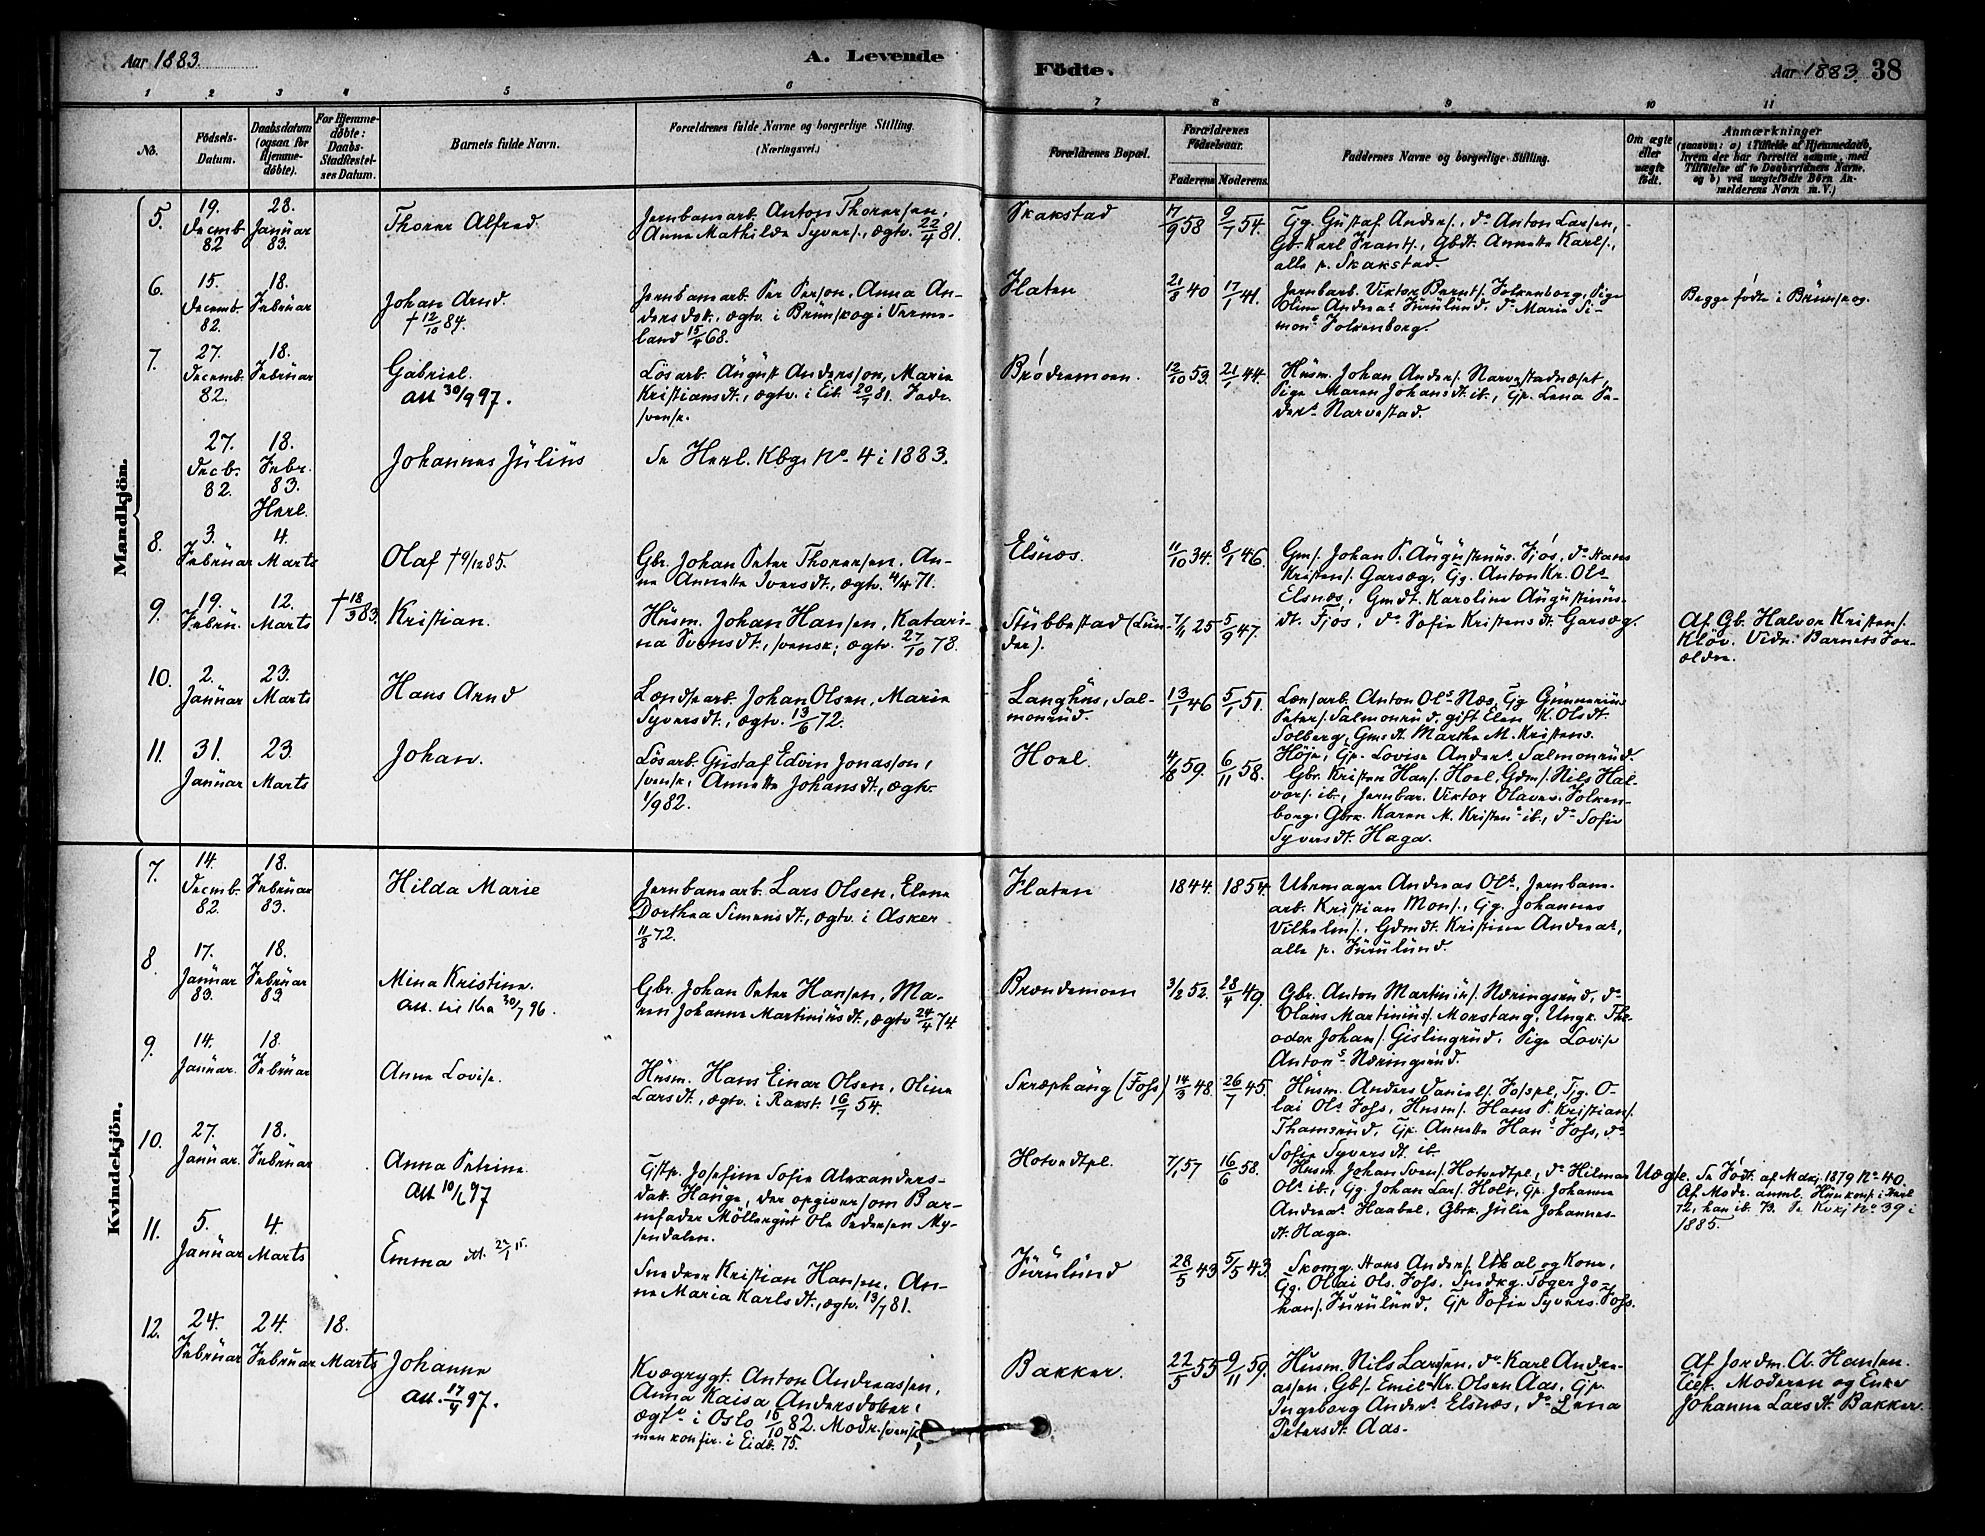 Aar 1883.
A. Levende
Födte.
Aar 1883.
38
1 2 3 4 5 6
7 8 9 10 11
No.
Födsels-
Datum.
Daabsdatum
(ogsaa for
Hjemme-
døbte).
For Hjemme-
døbte:
Daabs-
Stadfæstel-
ses Datum.
Barnets fulde Navn.
Forældrenes fulde Navne og borgerlige Stilling.
(Næringsvei.)
Forældrenes Bopæl.
Forældrenes
Födselsaar.
Faderens
Moderens.
Faddernes Navne og borgerlige Stilling.
Om ægte
eller
uægte
födt.
Anmærkninger
(saasom: a) i Tilfælde af Hjemmedaab,
hvem der har forrettet samme, med
Tilföielse af to Daabsvidners Navne,
og b) ved uægtefødte Börn An-
melderens Navn m. V.)
Mandkjön.
5.
19.
Decmb
82
28.
Januar
83.
Thorer Alfred.
Jernbanearb. Anton Thoresen,
Anne Mathilde Syvers., ægtv. 22/4 81.
Skakstad
17/9 58
9/1 54.
Gg. Gustaf Anders., do Anton Larsen,
Gb. Karl Frants., Gbdt. Annette Karls.,
alle p. Skakstad.
6.
15.
Decemb.
82.
18.
Februar
Johan Arnd.
† 12/10 84.
Jernbanearb. Per Person, Anna An-
dersdat., ægtv. i Brunskog i Verme-
land 15/4 68.
Flaten
40
17/1 41.
Jernbarb. Viktor Bernts. Folkenborg, Pige
Oline Andreas Furulund, do Marie Si-
mons Folkenborg.
Begge fødte i Brunskog.
7.
27.
Decemb.
82.
18.
Februar
Gabriel.
Att 30/9 97.
Lösarb. August Andersson, Marie
Kristiansdt., ægtv. i Eib. 20/1 81. Fadr.
svensk.
Brødremoen.
12/10 53.
21/1 44.
Husm. Johan Anders. Narvestadnæset,
Pige Maren Johansdt. ib., Gp. Lena Pe-
ders. Narvestad.
27.
Decb.
82.
18.
Febr.
83.
Herl.
Johannes Julius
Se Herl. Kbge No. 4 i 1883.
8.
3.
Februar
4.
Marts
Olaf † 9/12 85.
Gbr. Johan Peter Thoresen, An-
ne Annette Iversdt., ægtv. 4/4 71.
Elsnæs.
11/10 34.
8/1 46.
Gms. Johan P. Augustinus. Fjøs, do Hans
Kristens. Garsæg, Gg. Anton Kr. Ols.
Elsnæs, Gmdt. Karoline Augustinus-
dt. Fjøs, do Sofie Kristensdt. Garsæg
9.
19.
Febru.
12.
Marts
† 18/3 83.
Kristian.
Husm. Johan Hansen, Katari-
na Svensdt., svensk, ægtv. 27/10 78.
Stubbestad (Lun-
der).
25
5/9 47.
Af Gb. Halvor Kristens.
Kløv. Vidn. Barnets For-
ældre.
10.
2.
Januar
23.
Marts
Hans Arnd
Lændsearb. Johan Olsen, Marie
Syversdt., ægtv. 13/6 72.
Langhus, Sal-
monrud.
13/1 46
5/1 51.
Lænsarb. Anton Ols. Næs, Gg Gunnerius
Peters. Salmonrud, gift Elen K. Olsdt.
Solberg, Gmdt. Marthe M. Kristens.
Höje, Gp. Lovise Anders. Salmonrud.
11.
31.
Januar
23
Marts
Johan.
Lösarb. Gustaf Edvin Jonasson,
svensk, Annette Johansdt., ægtv.
1/9 82.
Hoel.
4/8 59.
6/11 58.
Gbr. Kristen Hans. Hoel, Gdms. Nils Hal-
vors. ib., Jernbar. Viktor Olaves. Folken-
borg, Gbrk. Karen M. Kristens ib., do Sofie
Syversdt. Haga.
Kvindekjön.
7.
14.
Decmb.
82.
18.
Februar
83.
Hilda Marie
Jernbanearb. Lars Olsen, Elene
Dorthea Simensdt., ægtv. i Asker
11/8 72.
Flaten
1844.
1854.
Uhrmager Andreas Ols., Jernbane-
arb. Kristian Mons., Gg. Johannes
Vilhelms., Gdmdt. Kristine Andreas,
alle p. Furulund.
8.
17.
Januar
83.
18.
Februar
83
Mina Kristine.
Att. til Kra 30/7 96.
Gbr. Johan Peter Hansen, Ma-
ren Johanne Martiniusdt., ægtv 24/4 74
Brændemoen
3/2 52.
28/4 49.
Gbr. Anton Martinius. Næringsrud, do
Olaus Martinius. Morstang, Ungk. The-
odor Johans. Gislingrud, Pige Lovise
Antons. Næringsrud.
9.
14.
Januar.
18.
Februar
Anna Lovise.
Husm. Hans Einar Olsen, Oline
Larsdt., ægtv. i Rakst. 16/1 54.
Skræphaug (Foss)
14/3 48.
26/7 45.
Husm. Anders Daniels. Fosspl., Gg. O-
lai Ols Foss, Husms. Hans P. Kristians.
Thamsrud, Gp. Annette Hans Foss, do
Sofie Syversdt. ib.
10.
27.
Januar.
18.
Februar
Anna Petrine.
Att 97
Gftp. Josefine Sofie Alexanders-
dat. Hauge, der opgiver som Bar-
nefader Möllergut Ole Pedersen My-
sendalen.
Hotvedtpl.
7/1 57
16/6 58.
Husm. Johan Svens. Hotvedtpl., do Hilman
Ols. ib., Gg. Johan Lars. Holt, Gp. Johanne
Andreas. Haabel, Gbrk. Julie Johannes-
dt. Haga.
Uægte.
Se Födt. af Mdkj 1879 No. 40.
Af Modr. anml.
72, han ib. Se Kvkj No. 39 i
1885.
11.
5.
Januar
4.
Marts
Emma
Snedker Kristian Hansen, An-
ne Maria Karlsdt., ægtv. 13/7 81.
Furulund
28/5 43
5/5 43.
Skomg. Hans Anders. Uthal og Kone,
Gg. Olai Ols. Foss, Snedkg. Töger Jo-
hans. Furulund, Gp Sofie Syvers. Foss.
12.
24.
Februar
24.
Februar
18.
Marts
Johanne
Att. 97.
Kvægrygt. Anton Andreassen,
Anna Kaisa Andersdoter,
ægtv i Oslo 15/10 82. Modr. svensk,
men konfir. i Eidb. 75.
Bakker.
22/5 55
9/11 59.
Husm. Nils Larssen, do Karl Andre-
assen, Gbs. Emil Kr. Olsen Aas, Gp.
Ingeborg Anders. Elsnæs, do Lena
Petersdt. Aas.
Af Jordm. A. Hansen.
Tilst. Moderen og Enke
Johanne Larsdt. Bakker.